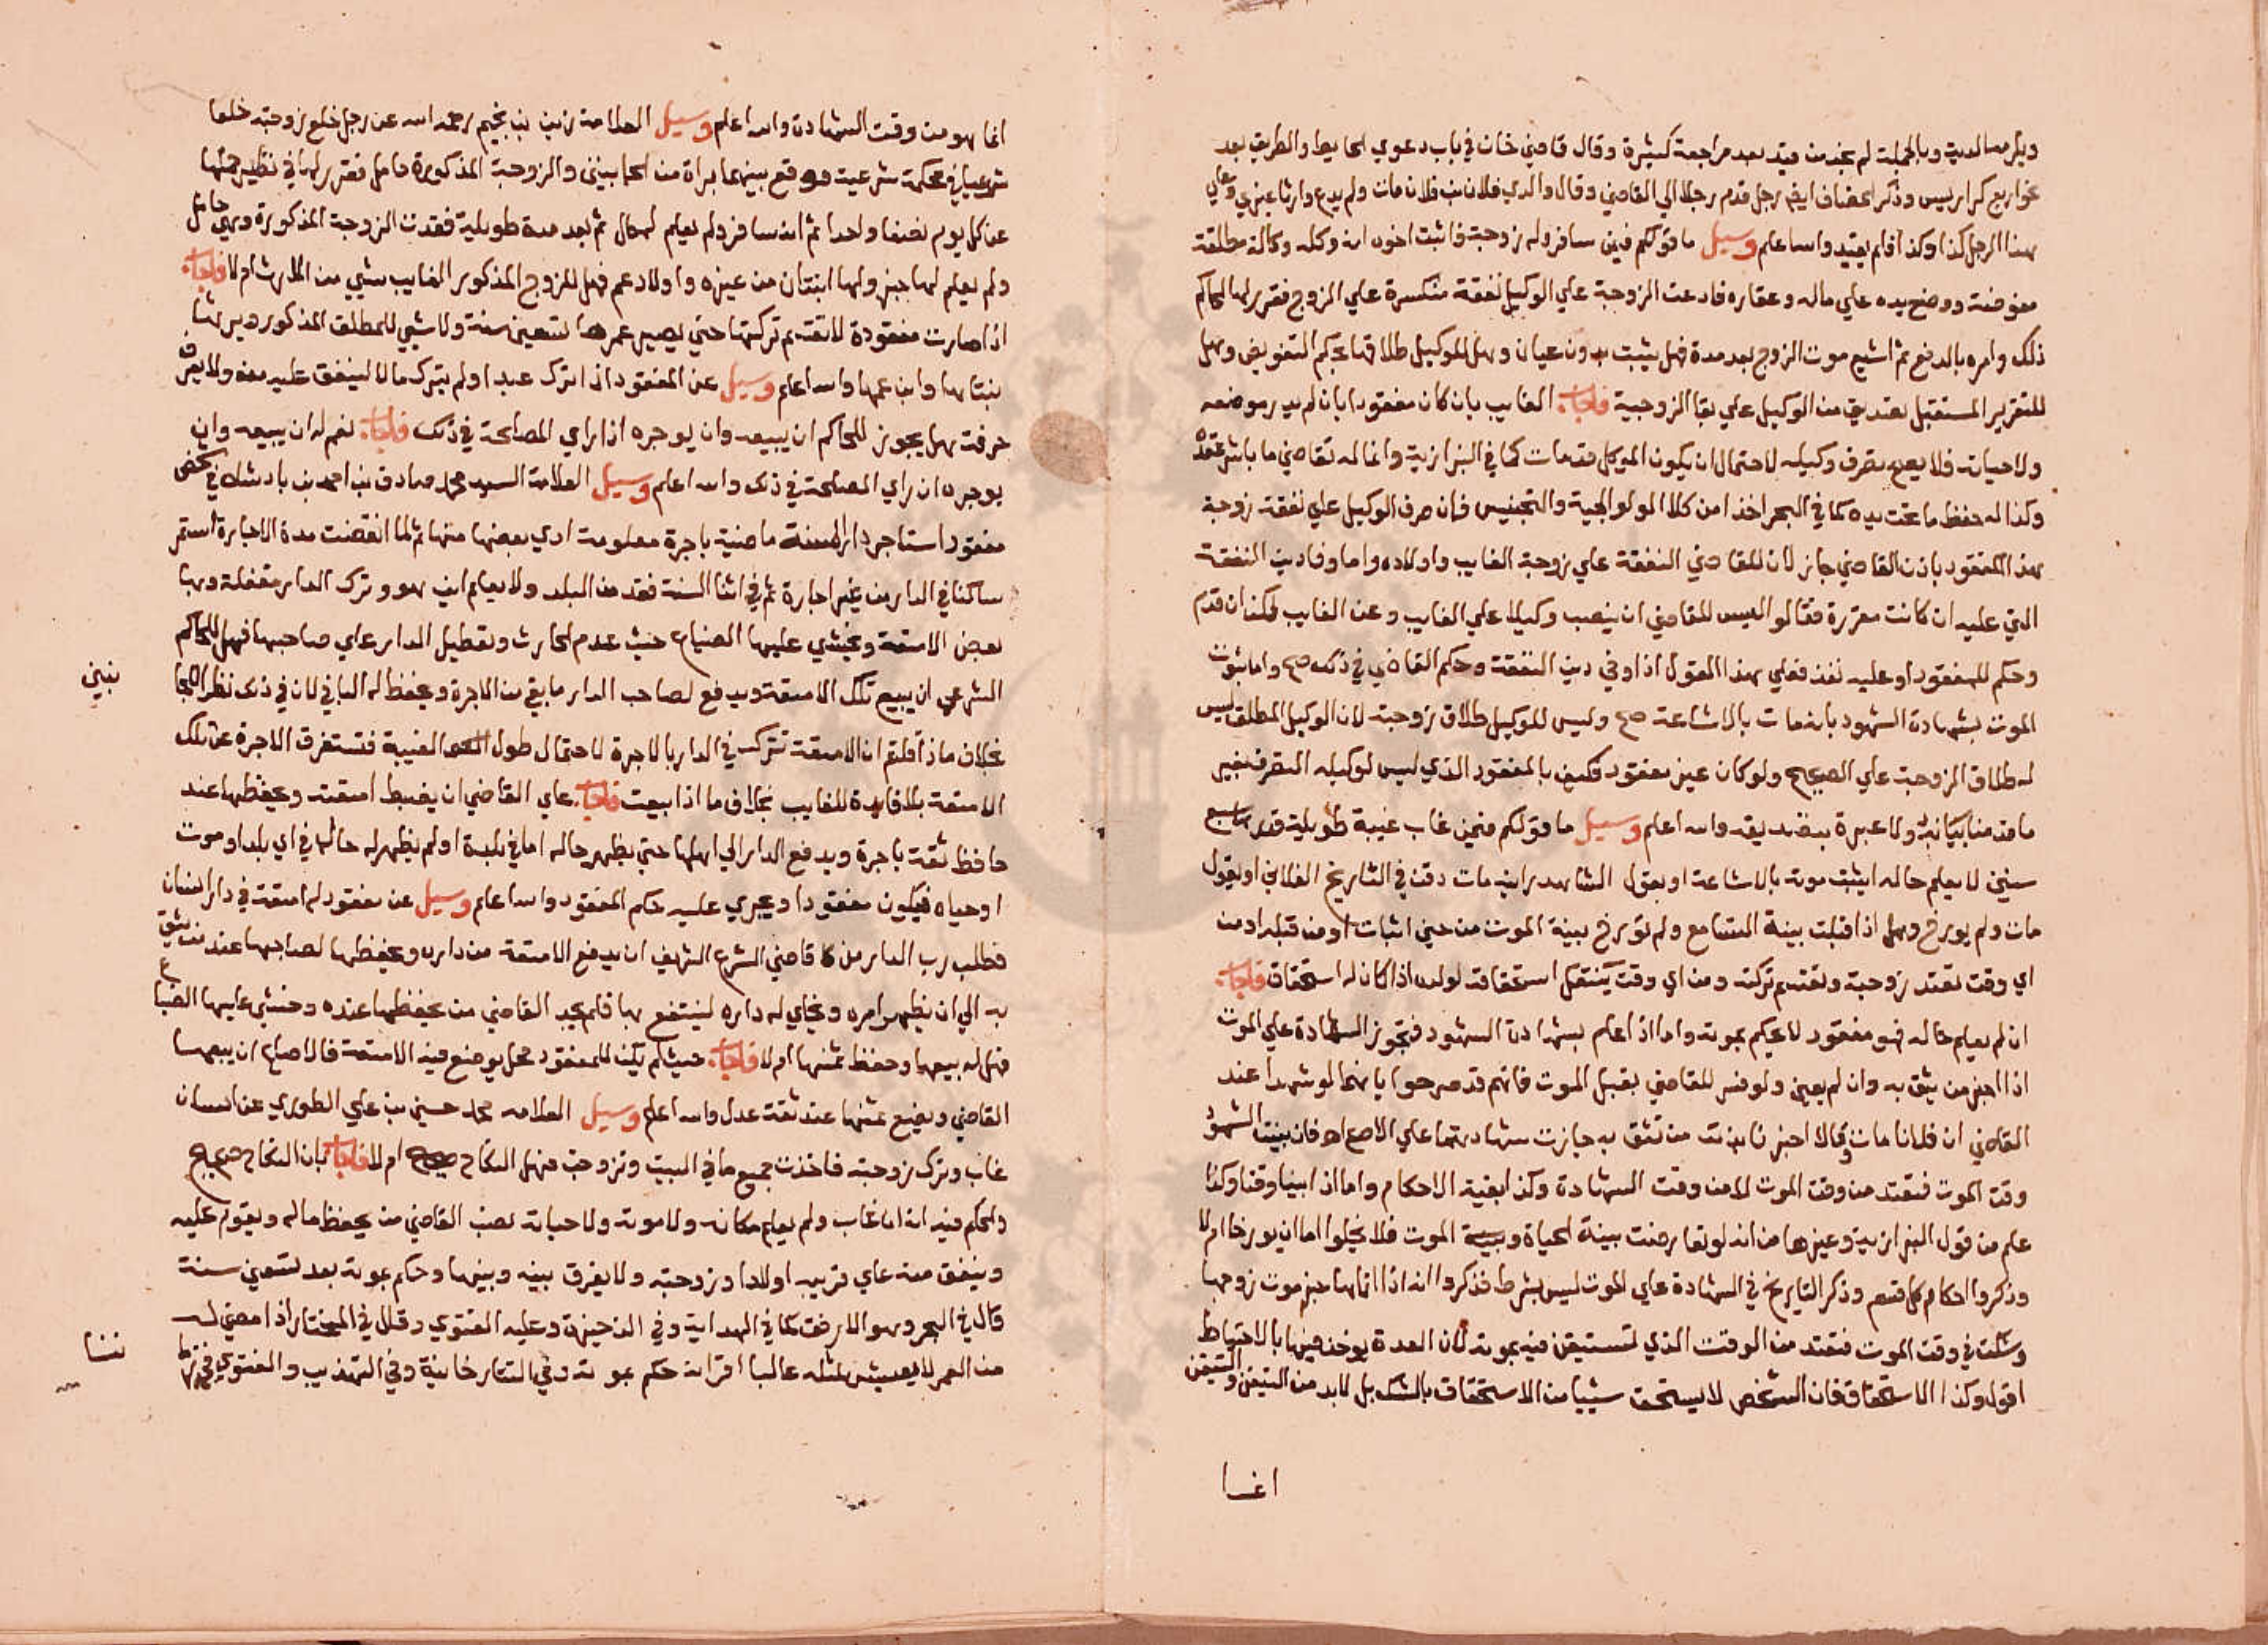 وبالجملة لم نجد من قيد بعد مراجعة كثيرة وقال قاضي خان في باب دعوي الحايط والطريق بعد
نحو اربع كراريس وذكر الخصاف ايضا رجل قدم رجلا الي القاضي وقال والدي فلان بن فلان مات ولم يدع وارثا غيري وعلي
هذا الرجل كذا وكذا فلم يقيد والله اعلم وسيل ما قولكم فيمن سافر وله زوجة فاثبت اخوه انه وكله وكالة مطلقة
مفوضة ووضع يده علي ماله وعقاره فادعت الزوجة علي الوكيل نفقة منكسرة علي الزوج فقرر لها الحاكم
ذلك وامره بالدفع ثم اشيع موت الزوج بعد مدة فهل يثبت بدون عيان وهل للوكيل طلاقها بحكم التفويض وهل
للتقرير المستقبل بتصديق من الوكيل علي بقا الزوجية فاجاب الغايب بان كان مفقودا بان لم يدر موضعه
ولا حياته فلا يصح تصرف وكيله لاحتمال ان يكون الموكل قد مات كما في البزازية وانما له تقاضي ما باشر عقده
وكذا له حفظ ما تحت يده كما في البحر اخذا من كلام الولوالجية والتجنيس فان صرف الوكيل علي نفقة زوجة
هذا المفقود باذن القاضي جاز لان للقاضي النفقة علي زوجة الغايب واولاده واما وفا دين النفقة
التي عليه ان كانت مقررة فقالوا ليس للقاضي ان ينصب وكيلا علي الغايب وعن الغايب لكن ان قدم
وحكم للمفقود او عليه نفذ فعلي هذا القول اذا وفي دين النفقة وحكم القاضي في ذلك صح واما ثبوت
الموت بشهادة الشهود بانه مات بالاشاعة صح وليس للوكيل طلاق زوجته لان الوكيل المطلق ليس
له طلاق الزوجة علي الصحيح ولو كان غير مفقود فكيف بالمفقود الذي ليس لوكيله التصرف بغير
ما قدمنا بيانه ولا عبرة بتصديقه والله اعلم وسيل ما قولكم فيمن غاب غيبة طويلة قدر تسع
سنين لا يعلم حاله ايثبت موته بالاشاعة او بقول الشاهد انه مات وقت في التاريخ الفلاني او يقول
مات ولم يورخ وهل اذا قبلت بينة التسامع ولم تورخ بينة الموت من حين اثبات او من قبله او من
اي وقت تعتد زوجته وتقسم تركته ومن اي وقت ينتقل استحقاقه لولده اذا كان له استحقاق فاجاب
ان لم يعلم حاله فهو مفقود لا يحكم بموته واما اذا علم بشهادة الشهود فتجوز الشهادة علي الموت
اذا اخبر من يثق به وان لم يعين ولو فسر للقاضي يقبل الموت فانهم قد صرحوا بانهما لو شهدا عند
القاضي ان فلانا مات وقالا اخبرنا بذلك من نثق به جازت شهادتهما علي الاصح اه فان بينت الشهود
وقت الموت فتعتد من وقت الموت لا من وقت الشهادة وكذا بقية الاحكام واما اذا بينا وقتا وكذا
علم من قول البزازية وغيرها من انه لو تعارضت بينة الحياة وبينة الموت فلا يخلوا اما ان يورخا ام لا
وذكروا احكام كل قسم وذكر التاريخ في الشهادة علي الموت ليس بشرط فذكروا انه اذا اتاها خبر موت زوجها
وشكت في وقت الموت فتعتد من الوقت الذي تستيقن فيه بموته لان العدة يوخذ فيها بالاحتياط
اقول وكذا الاستحقاق فان الشخص لا يستحق شييا من الاستحقاق بالشك بل لابد من التيقن والتيقن
انما
انما هو من وقت الشهادة والله اعلم وسيل العلامة زين بن نجيم رحمه الله عن رجل خلع زوجته خلعا
شرعيا في محكمة شرعية ووقع بينهما براة من الجانبين والزوجة المذكورة حامل فقرر لها في نظير حملها
عن كل يوم نصفا واحدا ثم انه سافر ولم يعلم له حال ثم بعد مدة طويلة فقدت الزوجة المذكورة وهي حامل
ولم يعلم لها خبر ولها ابنتان من غيره واولاد عم فهل للزوج المذكور الغايب شيي من الارث ام لا فاجاب
اذا صارت مفقودة لا تقسم تركتها حتي يصير عمرها تسعين سنة ولا شيي للمطلق المذكور ويرثها
بنتاها وابن عمها والله اعلم وسيل عن المفقود اذا ترك عبدا ولم يترك مالا لينفق عليه منه ولا يعرف
حرفة هل يجوز للحاكم ان يبيعه وان يوجره اذا راي المصلحة في ذلك فاجاب نعم له ان يبيعه وان
يوجره ان راي المصلحة في ذلك والله اعلم وسيل العلامة السيد محمد صادق بن احمد بن بادشاه في شخص
مفقود استاجر دارا لسنة ماضية باجرة معلومة ادي بعضها منها ثم لما انقضت مدة الاجارة استمر
ساكنا في الدار من غير اجارة ثم في اثنا السنة فقد من البلد ولا يعلم اين هو وترك الدار مقفلة وبها
بعض الامتعة ويخشي عليها الضياع حيث عدم الحارث وتعطيل الدار علي صاحبها فهل للحاكم
الشرعي ان يبيع تلك الامتعة ويدفع لصاحب الدار ما بقي من الاجرة ويحفظ له الباقي لان في ذلك نظرا للجا
نبين
بخلاف ما اذا قلتم ان الامتعة تترك في الدار بالاجرة لاحتمال طول الغيبة فتستغرق الاجرة عن تلك
الامتعة بلا فايدة للغايب بخلاف ما اذا بيعت فاجاب علي القاضي ان يضبط امتعته ويحفظها عند
حافظ ثقة باجرة ويدفع الدار الي اهلها حتي يظهر حاله اما في بلدة او لم يظهر له حاله في اي بلد او موت
او حياه فيكون مفقودا ويجري عليه حكم المفقود والله اعلم وسيل عن مفقود له امتعة في دار انسان
فطلب رب الدار من قاضي الشرع الشريف ان يدفع الامتعة من داره ويحفظها لصاحبها عند من يثق
به الي ان يظهر امره ويخلي له داره لينتفع بها فلم يجد القاضي من يحفظها عنده وخشي عليها الضياع
فهل له بيعها وحفظ ثمنها ام لا فاجاب حيث لم يكن للمفقود محل يوضع فيه الامتعة فالاصلح ان يبيعها
القاضي ويضع ثمنها عند ثقة عدل والله اعلم وسيل العلامه محمد حسين بن علي الطوري عن انسان
غاب وترك زوجته فاخذت جميع ما في البيت وتزوجت فهل النكاح صحيح ام لا فاجاب بان النكاح صحيح
والحكم فيه انه اذا غاب ولم يعلم مكانه ولا موته ولا حياته نصب القاضي من يحفظ ماله ويقوم عليه
وينفق منه علي قريبه اولادا وزوجته ولا يفرق بينه وبينها وحكم بموته بعد تسعين سنة
قال في البحر وهو الارفق كما في الهداية وفي الذخيرة وعليه الفتوي وقال في المختار اذا مضي له
من العمر لا يعيش مثله غالبا اقرانه حكم بموته وفي التتارخانية وفي التهذيب والفتوي في